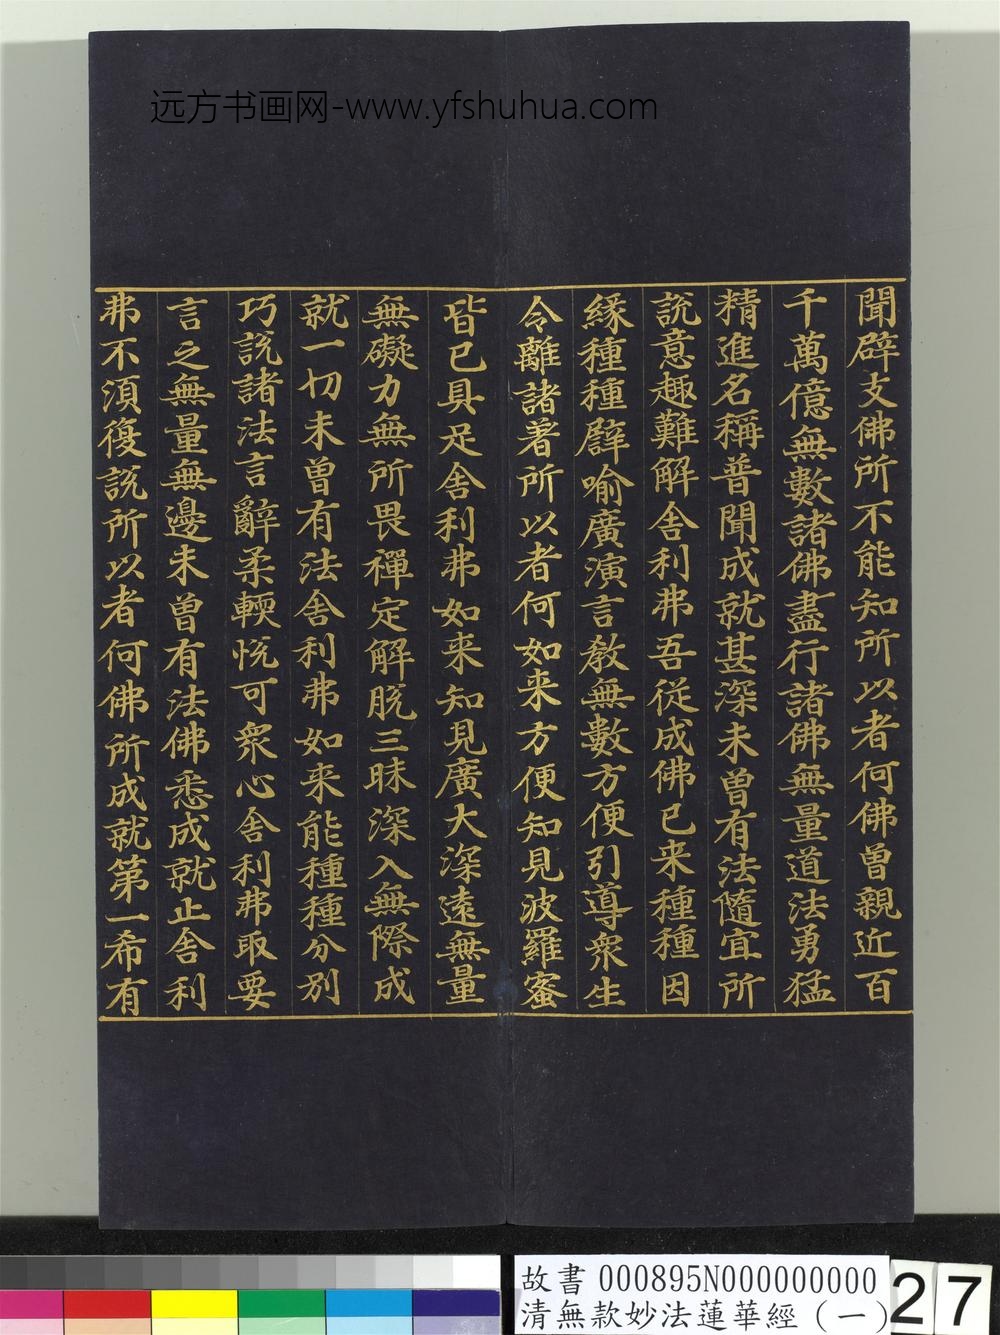 远方书画网-www.yfshuhua.com
聞辟支佛所不能知所以者何佛曽親近百
千萬億無數諸佛盡行諸佛無量道法勇猛
精進名稱普聞成就甚深未曽有法隨宜所
說意趣難解舍利弗吾從成佛已来種種因
緣種種譬喻廣演言教無數方便引導衆生
令離諸著所以者何如来方便知見波羅蜜
皆已具足舍利弗如来知見廣大深遠無量
無礙力無所畏禪定解脫三昧深入無際成
就一切未曽有法舍利弗如来能種種分别
巧說諸法言辭柔輭悅可衆心舍利弗取要
言之無量無邊未曽有法佛悉成就止舍利
弗不須復說所以者何佛所成就第一希有
故書 000895N000000000
清無款妙法蓮華經（一）
27